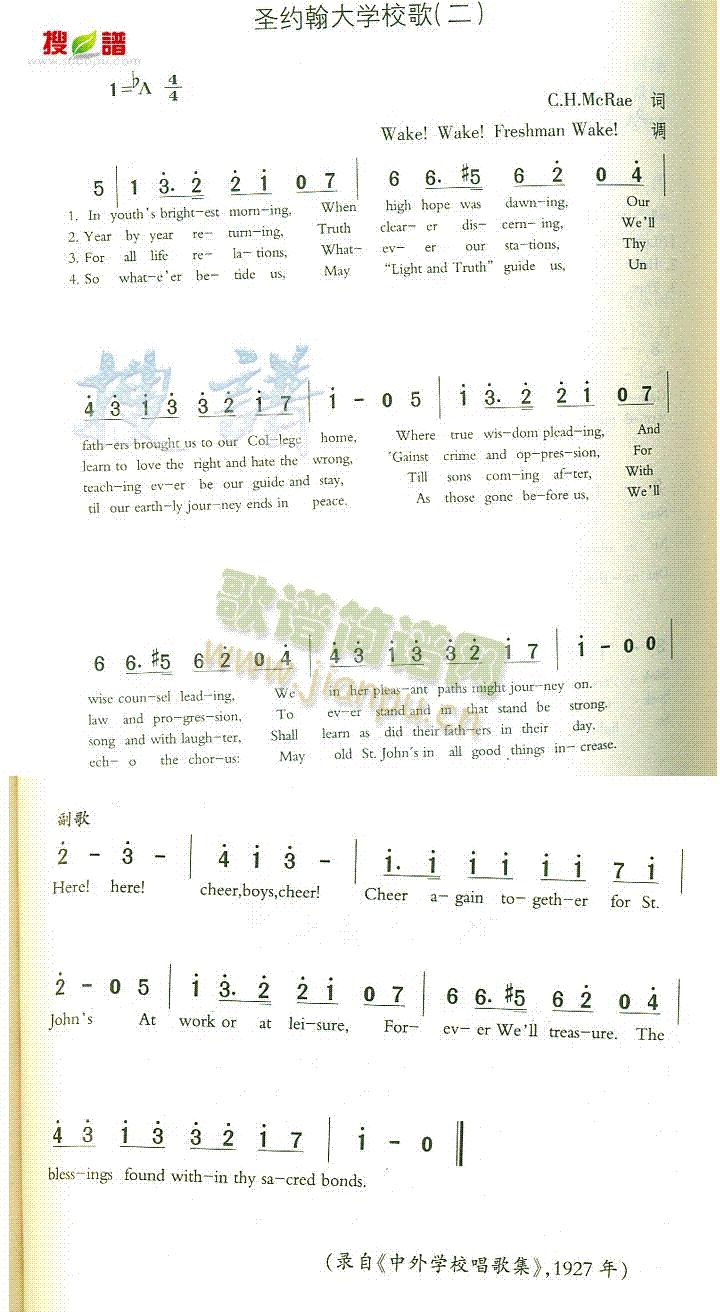 圣约翰大学校歌(二)
搜 谱
www.sooopu.com
1=♭A 4/4
C.H.McRae 词
Wake! Wake! Freshman Wake! 调
5 | 1 3̇. 2̇ 2̇ 1̇ 0 7 | 6 6. #5 6 2̇ 0 4̇ |
1. In youth's bright-est morn-ing, When high hope was dawn-ing, Our
2. Year by year re- turn-ing, Truth clear- er dis- cern-ing, We'll
3. For all life re- la-tions, What- ev- er our sta-tions, Thy
4. So what-e'er be- tide us, May “Light and Truth” guide us, Un
4̇ 3̇ 1̇ 3̇ 3̇ 2̇ 1̇ 7 | 1̇ - 0 5 | 1̇ 3̇. 2̇ 2̇ 1̇ 0 7 |
fath-ers brought us to our Col-lege home, Where true wis-dom plead-ing, And
learn to love the right and hate the wrong, 'Gainst crime and op-pres-sion, For
teach-ing ev-er be our guide and stay, Till sons com-ing af-ter, With
til our earth-ly jour-ney ends in peace. As those gone be-fore us, We'll
歌谱简谱网
www.jianpu.cn
6 6. #5 6 2̇ 0 4̇ | 4̇ 3̇ 1̇ 3̇ 3̇ 2̇ 1̇ 7 | 1̇ - 0 0 |
wise coun-sel lead-ing, We in her pleas-ant paths might jour-ney on.
law and pro-gres-sion, To ev-er stand and in that stand be strong.
song and with laugh-ter, Shall learn as did their fath-ers in their day.
ech-o the chor-us: May old St. John's in all good things in-crease.
副歌
2̇ - 3̇ - | 4̇ 1̇ 3̇ - | 1̇. 1̇ 1̇ 1̇ 1̇ 1̇ 7 1̇ |
Here! here! cheer,boys,cheer! Cheer a-gain to-geth-er for St.
2̇ - 0 5 | 1̇ 3̇. 2̇ 2̇ 1̇ 0 7 | 6 6. #5 6 2̇ 0 4̇ |
John's At work or at lei-sure, For- ev- er We'll treas-ure. The
4̇ 3̇ 1̇ 3̇ 3̇ 2̇ 1̇ 7 | 1̇ - 0 ‖
bless-ings found with-in thy sa-cred bonds.
(录自《中外学校唱歌集》,1927 年)